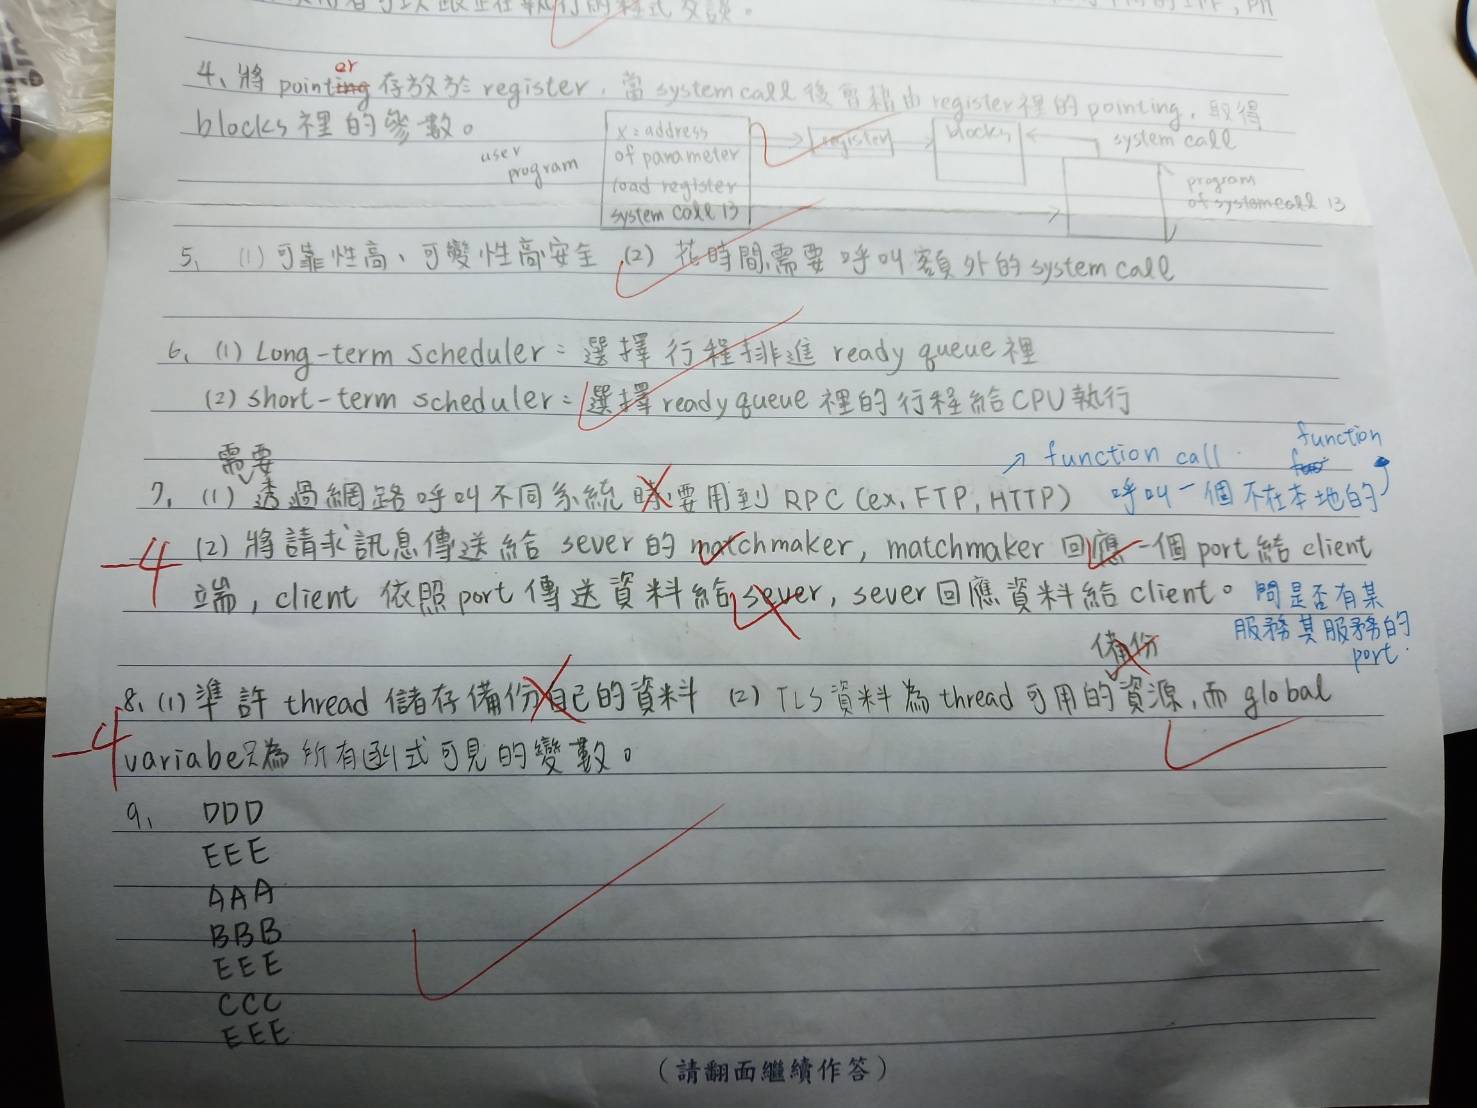 4、將 pointing 存放於 register，當 system call 後會藉由 register 裡的 pointing，取得
er
blocks 裡的參數。
user
program
x = address
of parameter
load register
system call 13
register
blocks
system call
program
of systemcall 13
5、(1) 可靠性高、可變性高、安全 (2) 花時間，需要呼叫額外的 system call
6、(1) Long-term scheduler = 選擇行程排進 ready queue 裡
(2) short-term scheduler = 選擇 ready queue 裡的行程給 CPU 執行
→ function call
function
需要
7、(1) 透過網路呼叫不同系統時，要用到 RPC (ex. FTP, HTTP)
呼叫一個不在本地的
-4
(2) 將請求訊息傳送給 sever 的 matchmaker, matchmaker 回應一個 port 給 client
端, client 依照 port 傳送資料給 sever, sever 回應資料給 client。
問是否有某
服務其服務的
port.
備份
8、(1) 準許 thread 儲存備份自己的資料 (2) TLS 資料為 thread 可用的資源，而 global
-4
variabe只為所有函式可見的變數。
9、 DDD
EEE
AAA
BBB
EEE
CCC
EEE
(請翻面繼續作答)